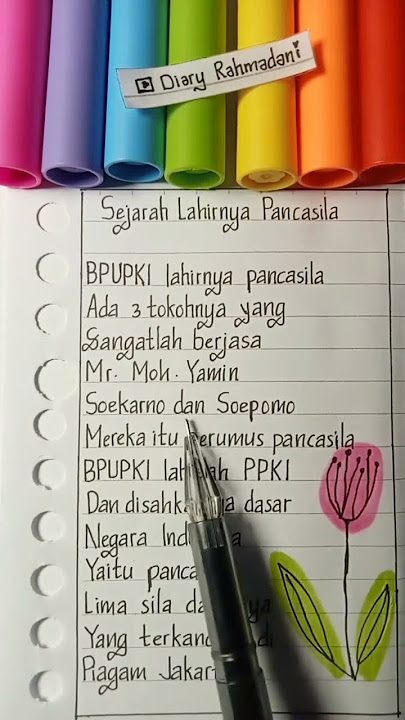 Diary Rahmadani
Sejarah Lahirnya Pancasila
BPUPKI lahirnya pancasila
Ada 3 tokohnya yang
Sangatlah berjasa
Mr. Moh. Yamin
Soekarno dan Soepomo
Mereka itu perumus pancasila
BPUPKI PPKI
Dan dasar
Negara
Yaitu
Lima sila
Yang
Piagam